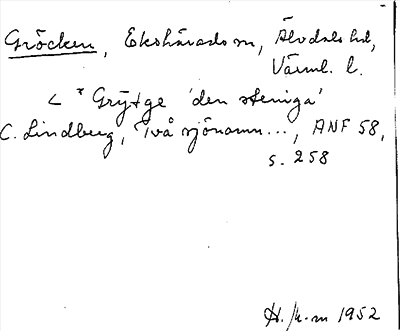 Gröcken, Ekshärads sn, Älvdals hd,
Värml. l.
< * Grȳtge 'den steniga'
C. Lindberg, Två sjönamn..., ANF 58,
s. 258
H. 1952